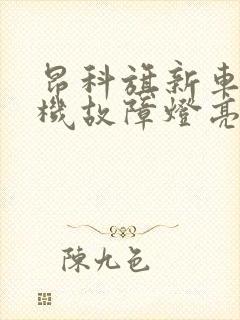 昂科旗新車
機故障燈亮
陳九色